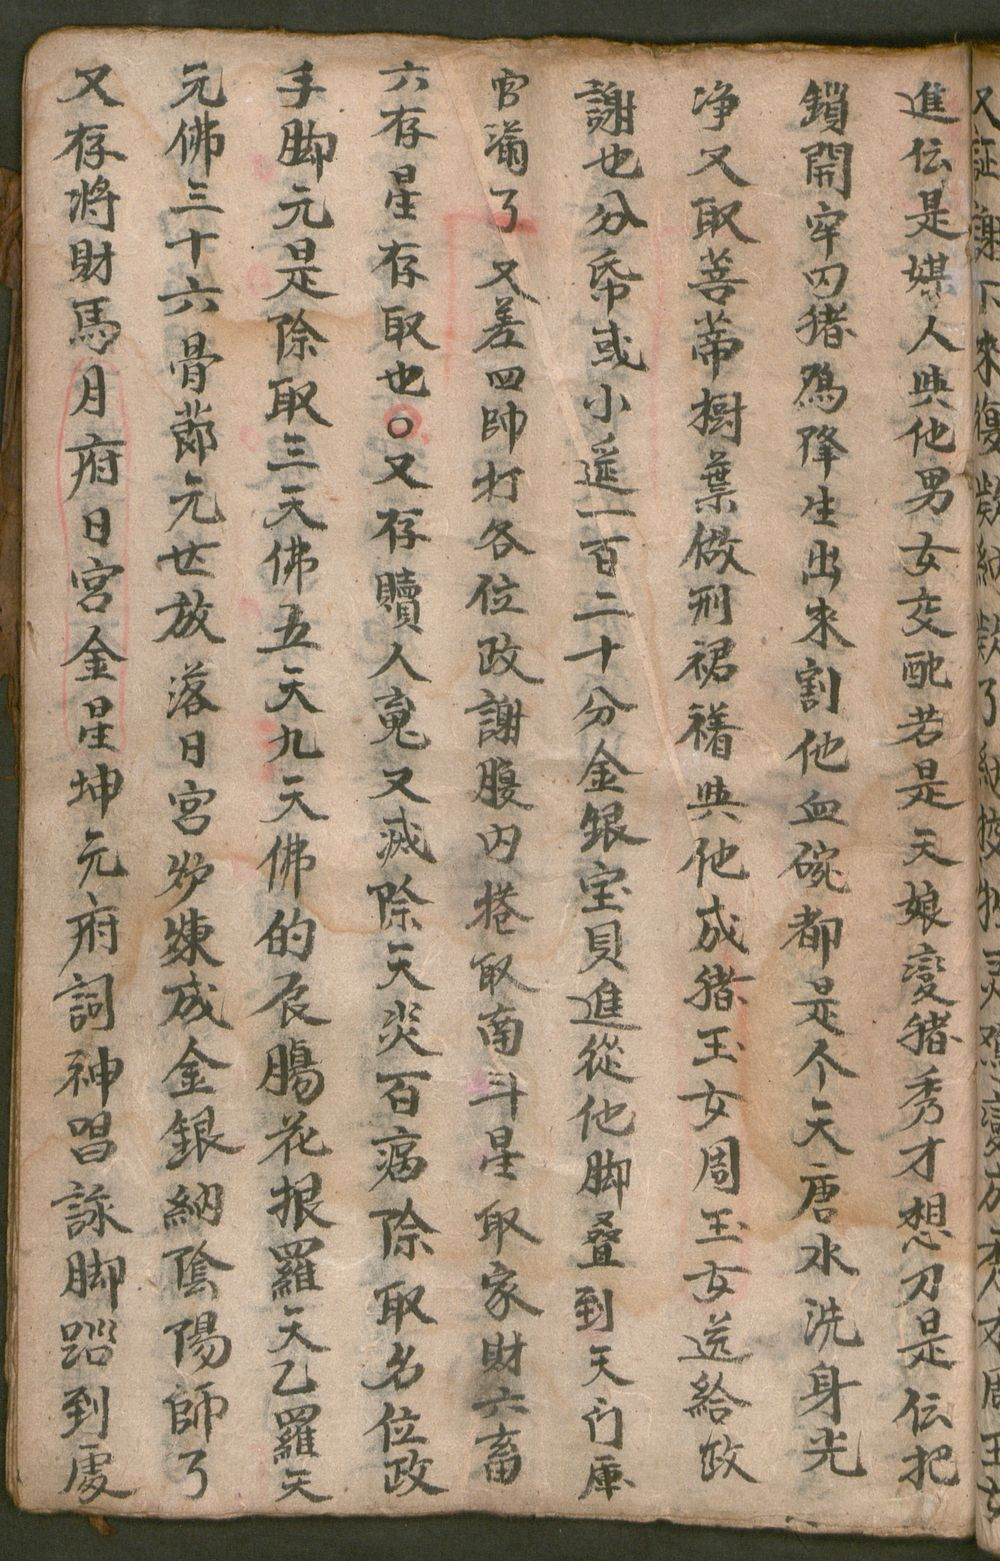 進伝是媒人與他男女交配若是天娘變猪秀才想刀是伝把
鎖開牢囚猪為降生出來割他血碗都是个天唐水洗身光
净又取菩蒂樹葉做刑裙褚與他成猪玉女周玉女送給政
謝也分帋或小遥一百二十分金銀宝貝進從他脚叠到天门庫
官滿了又差四帥打各位政謝腹内捲取南斗星取家財六畜
六存星存取也○又存贖人䰟又滅除天災百病除取名位政
手脚元是除取三天佛五天九天佛的辰腸花报羅天乙羅天
元佛三十六骨莭元世放落日宮炉煉成金銀納陰陽師了
又存將財馬月府日宮金星坤元府詞神唱詠脚踏到處